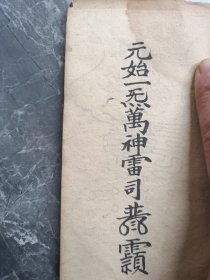 元始一炁萬神雷司